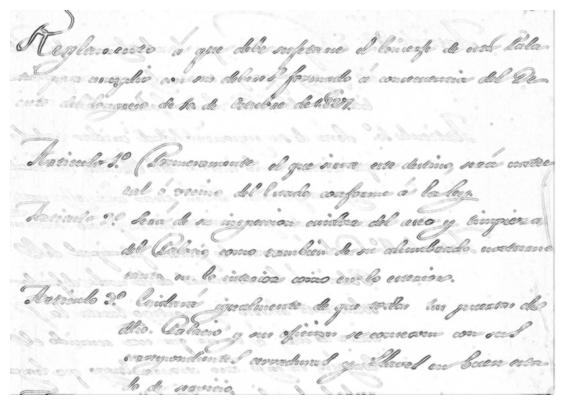 Reglamento á que debe sujetarse el Conserje de este Pala-
cio para cumplir con su deber y formado á consecuencia del De-
creto del Congreso de 10 de Octubre de 1827.
Articulo 1.º Primeramente el que sirva este destino, será natu-
ral ó vecino del Estado conforme á la ley.
Articulo 2.º Será de su inspeccion cuidar del aseo y limpieza
del Palacio, como tambien de su alumbrado,
tanto en lo interior como en lo exterior.
Articulo 3.º Cuidará igualmente de que todas las puertas de
dho. Palacio y sus oficinas se conserven con sus
correspondientes cerraduras y llaves en buen esta-
do de servicio.